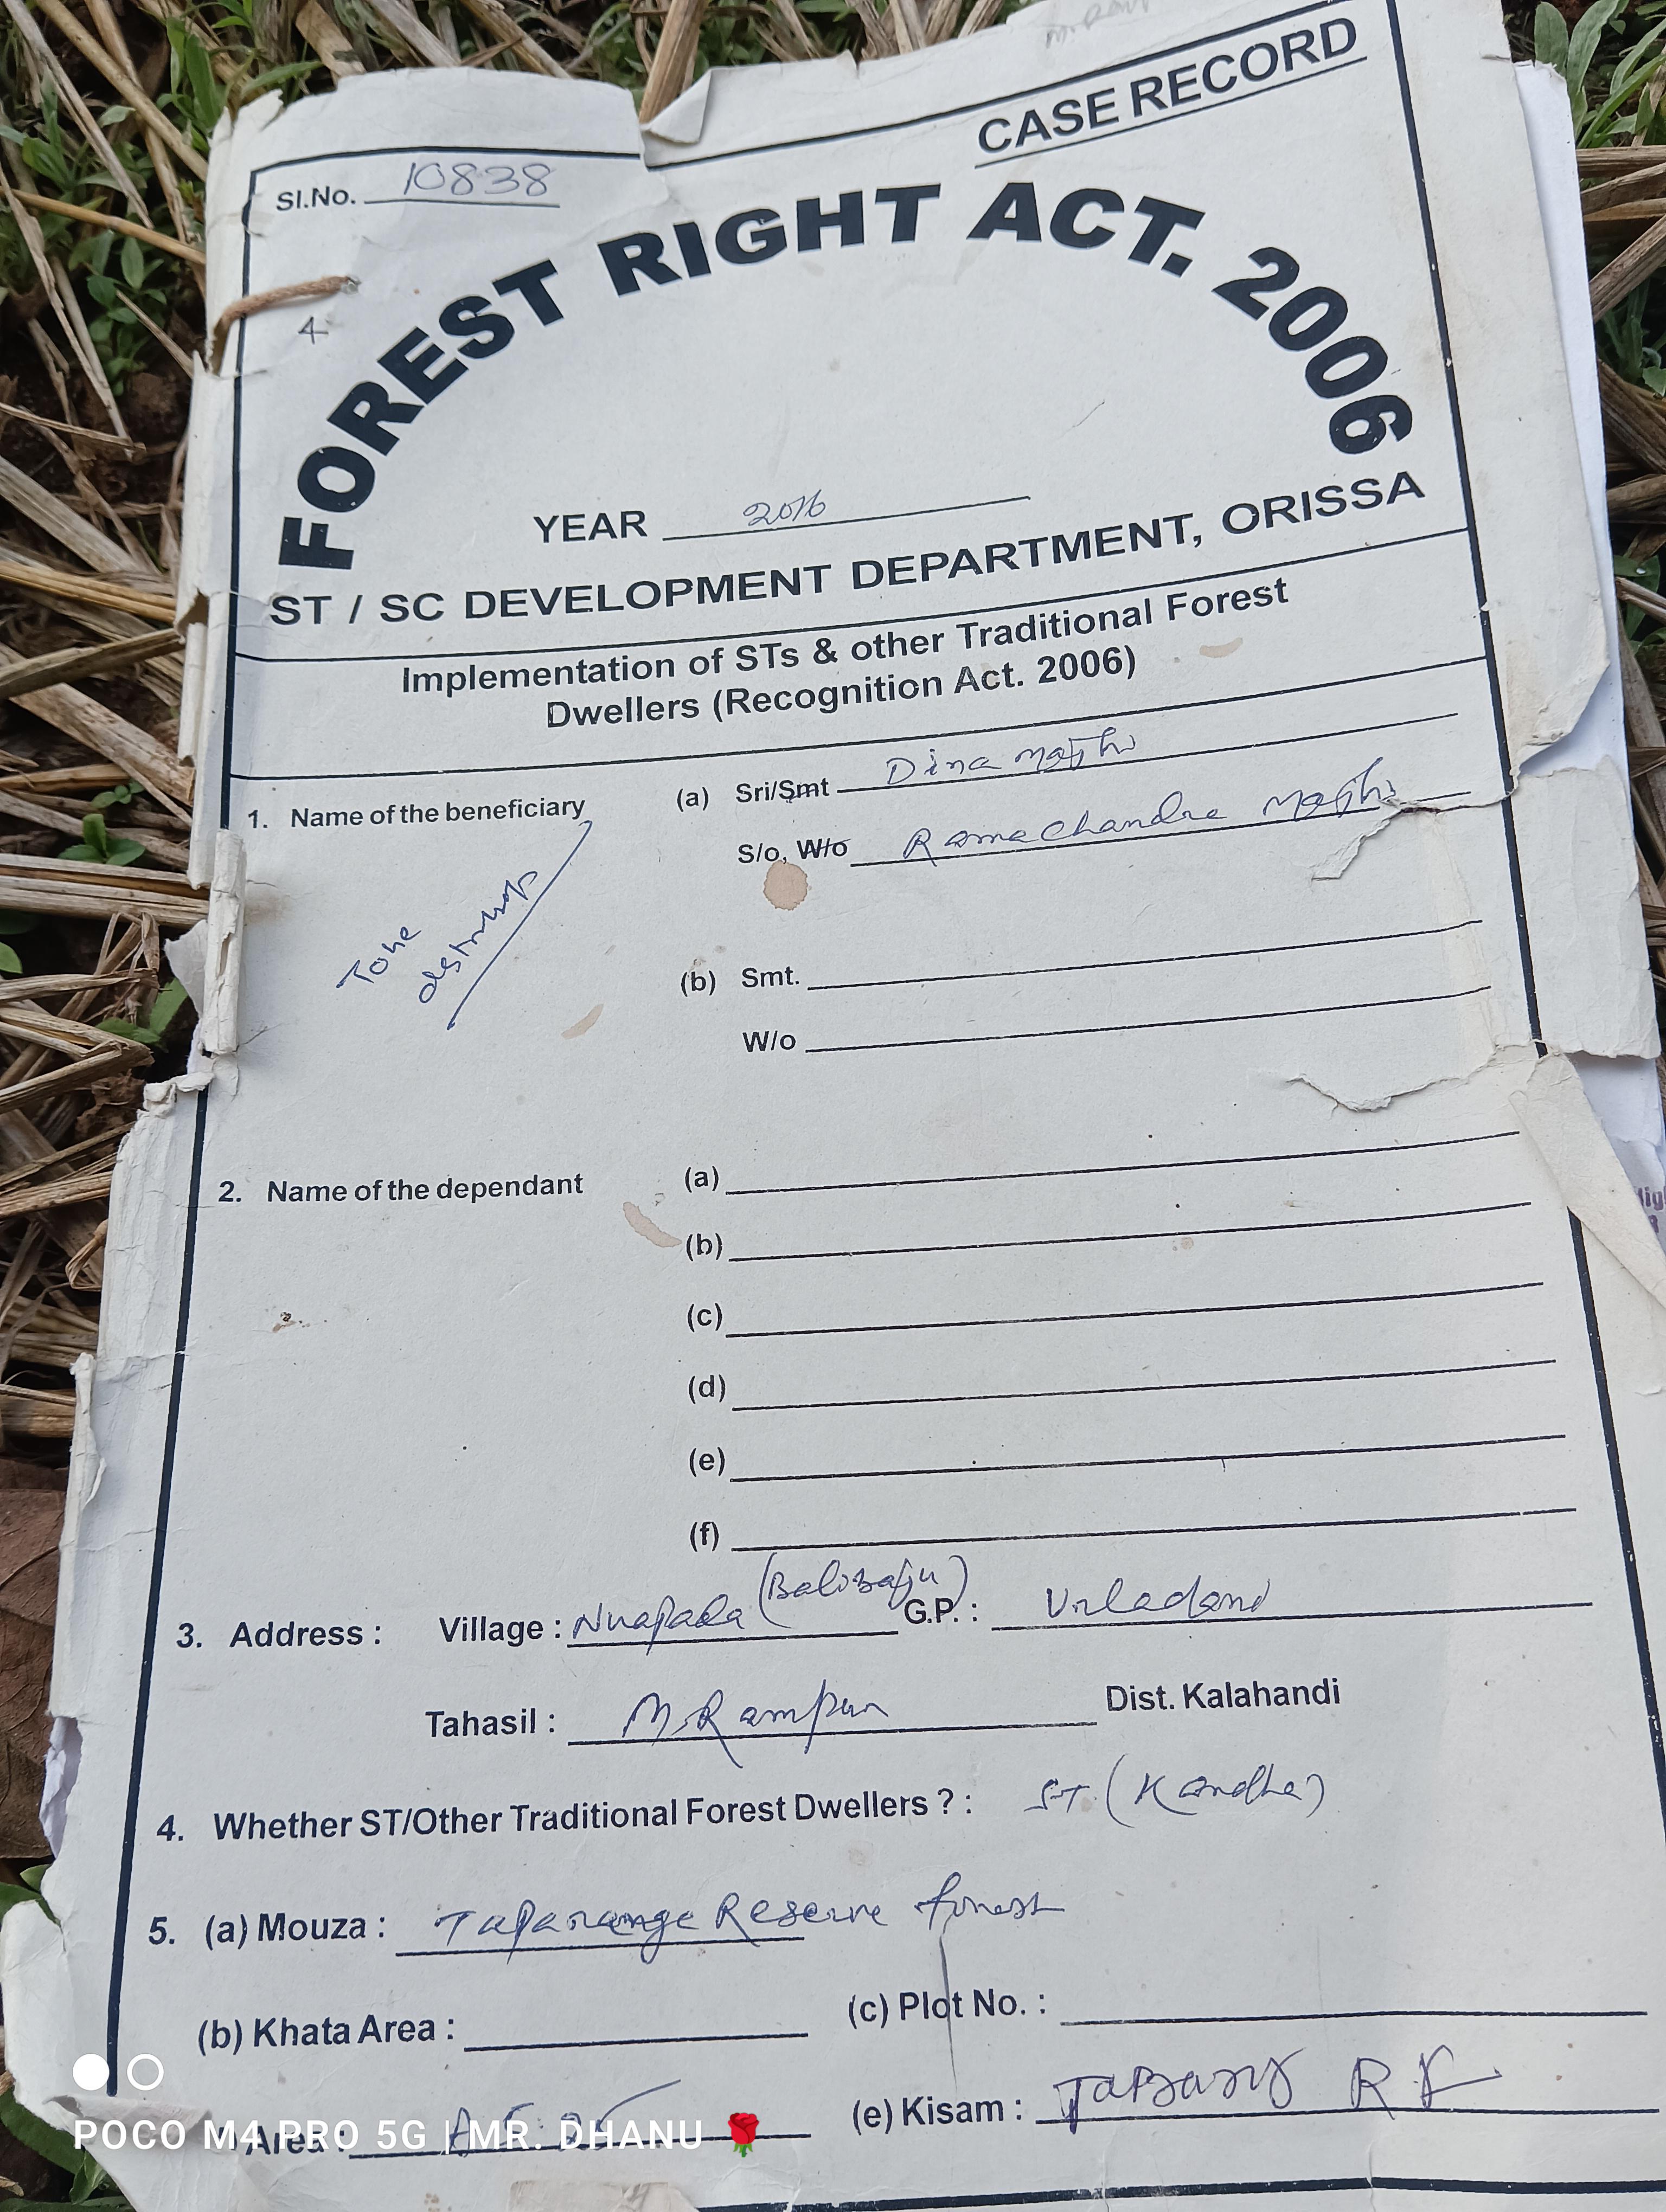 CASE RECORD
Sl.No. 10838
4
FOREST RIGHT ACT. 2006
YEAR 2016
ST / SC DEVELOPMENT DEPARTMENT, ORISSA
Implementation of STs & other Traditional Forest
Dwellers (Recognition Act. 2006)
1. Name of the beneficiary (a) Sri/Smt Dina Majhi
S/o, W/o Rama Chandra Majhi
(b) Smt.
W/o
2. Name of the dependant (a)
(b)
(c)
(d)
(e)
(f)
3. Address : Village : Nuapada (Balisaju) G.P. : Urladani
Tahasil : M.Rampur Dist. Kalahandi
4. Whether ST/Other Traditional Forest Dwellers ? : ST (Kandha)
5. (a) Mouza : Reserve forest
(b) Khata Area : (c) Plot No. :
Area : (e) Kisam : RF
POCO M4 PRO 5G | MR. DHANU 🌹